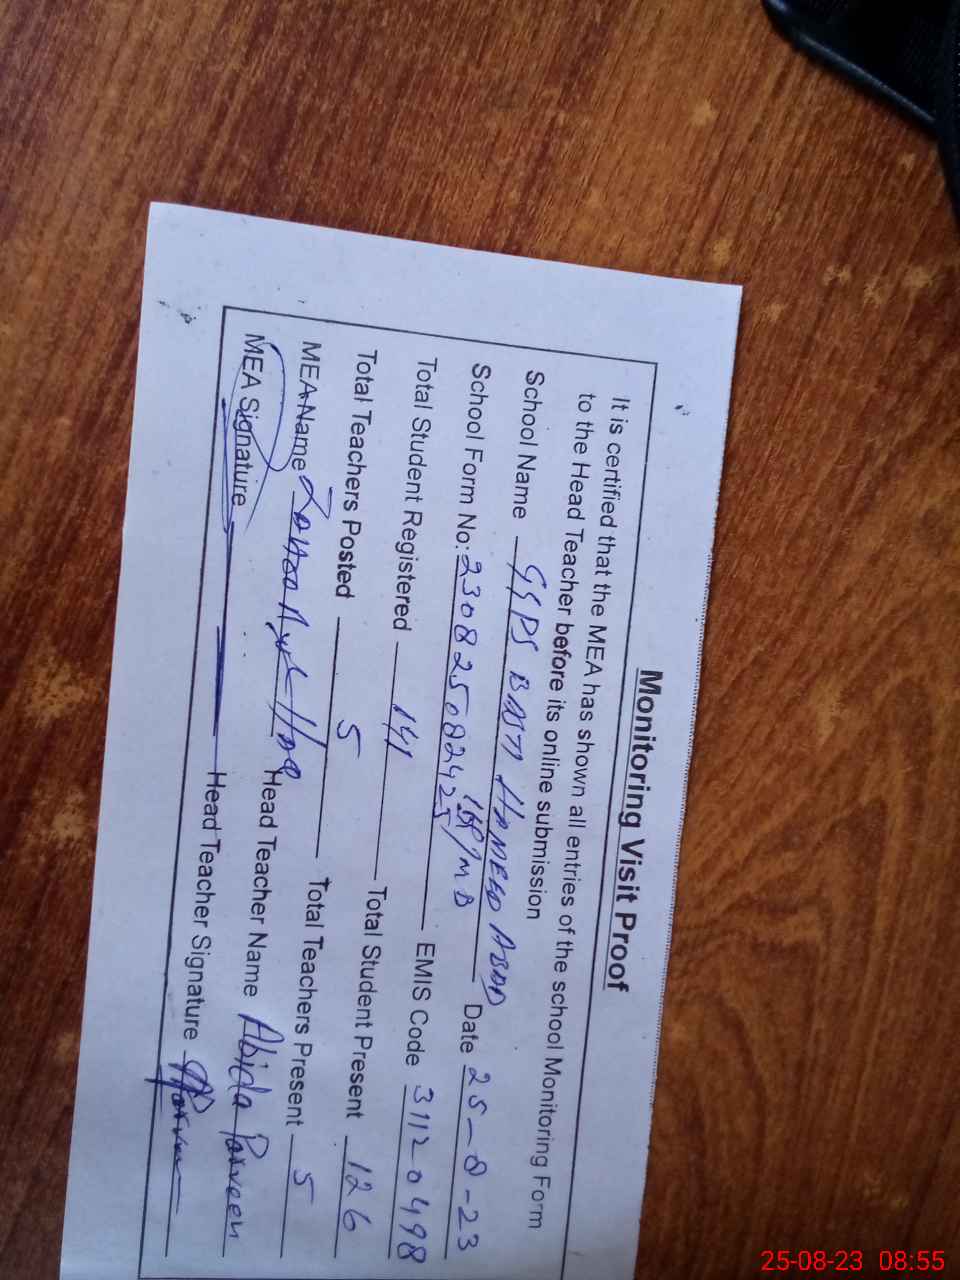 Monitoring Visit Proof
It is certified that the MEA has shown all entries of the school Monitoring Form
to the Head Teacher before its online submission
School Name GGPS BASTI HAMEED ABAD Date 25-8-23
School Form No: 230825082425 EMIS Code 31120498
Total Student Registered 141 Total Student Present 126
Total Teachers Posted 5 Total Teachers Present 5
MEA Name Head Teacher Name Abida Parveen
MEA Signature Head Teacher Signature
25-08-23 08:55